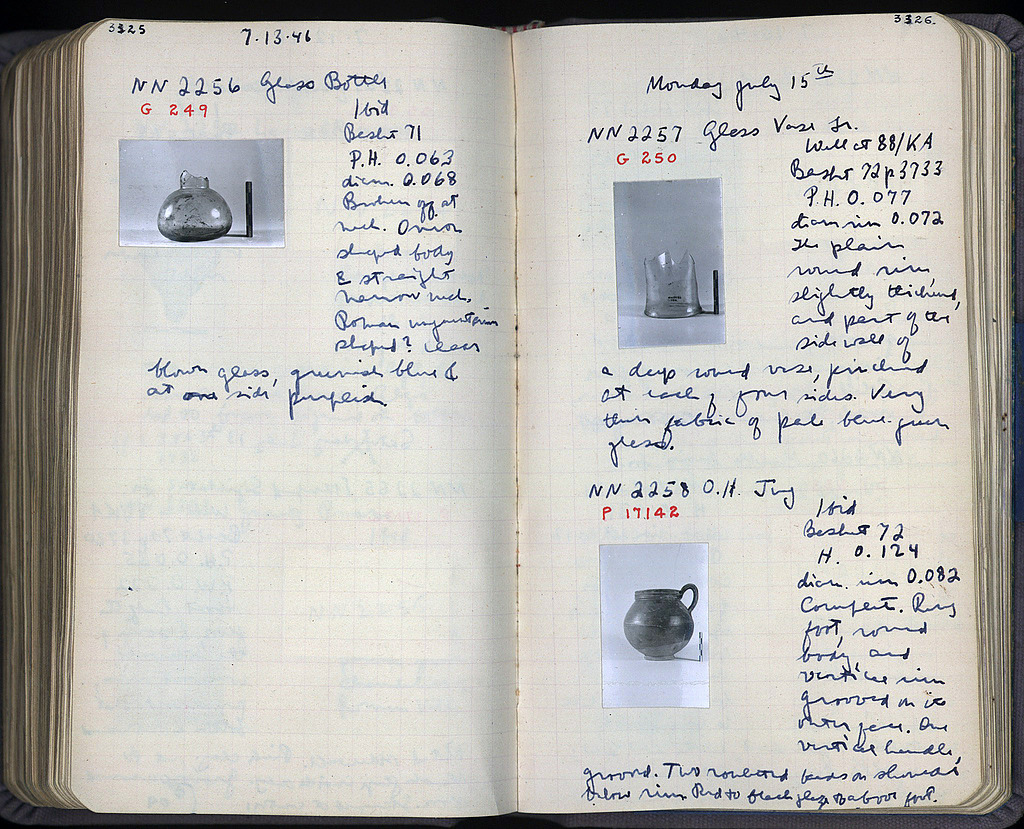 3325
7-13-46
NN 2256 Glass Bottle
G 249
Ibid
Basket 71
P.H. 0.063
diam. 0.068
Broken off at
neck. Onion
shaped body
& straight
narrow neck.
Roman unguentarium
shaped? Clear
blown glass, greenish blue &
at one side purplish.
3326.
Monday July 15th
NN 2257 Glass Vase Fr.
G 250
Well at 88/KA
Basket 72 p 3733
P.H. 0.077
diam rim 0.072
The plain
round rim,
slightly thickened,
and part of the
side wall of
a deep round vase, pinched
at each of four sides. Very
thin fabric of pale blue-green
glass.
NN 2258 O.H. Jug
P 17142
Ibid
Basket 72
H. 0.124
diam. rim 0.082
Complete. Ring
foot, round
body, and
vertical rim
grooved on its
outer face. One
vertical handle,
grooved. Two bands on shoulder
below rim Red to black glaze to above foot.